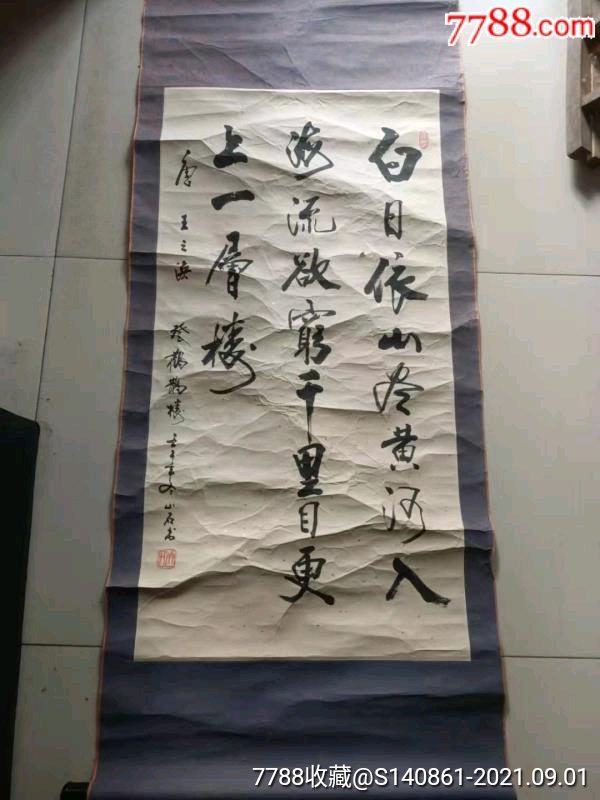 7788.com
白日依山尽黄河入
海流欲窮千里目更
上一層楼
唐 王之渙 登鹳鵲楼 壬午年冬 山石书
7788收藏@S140861-2021.09.01